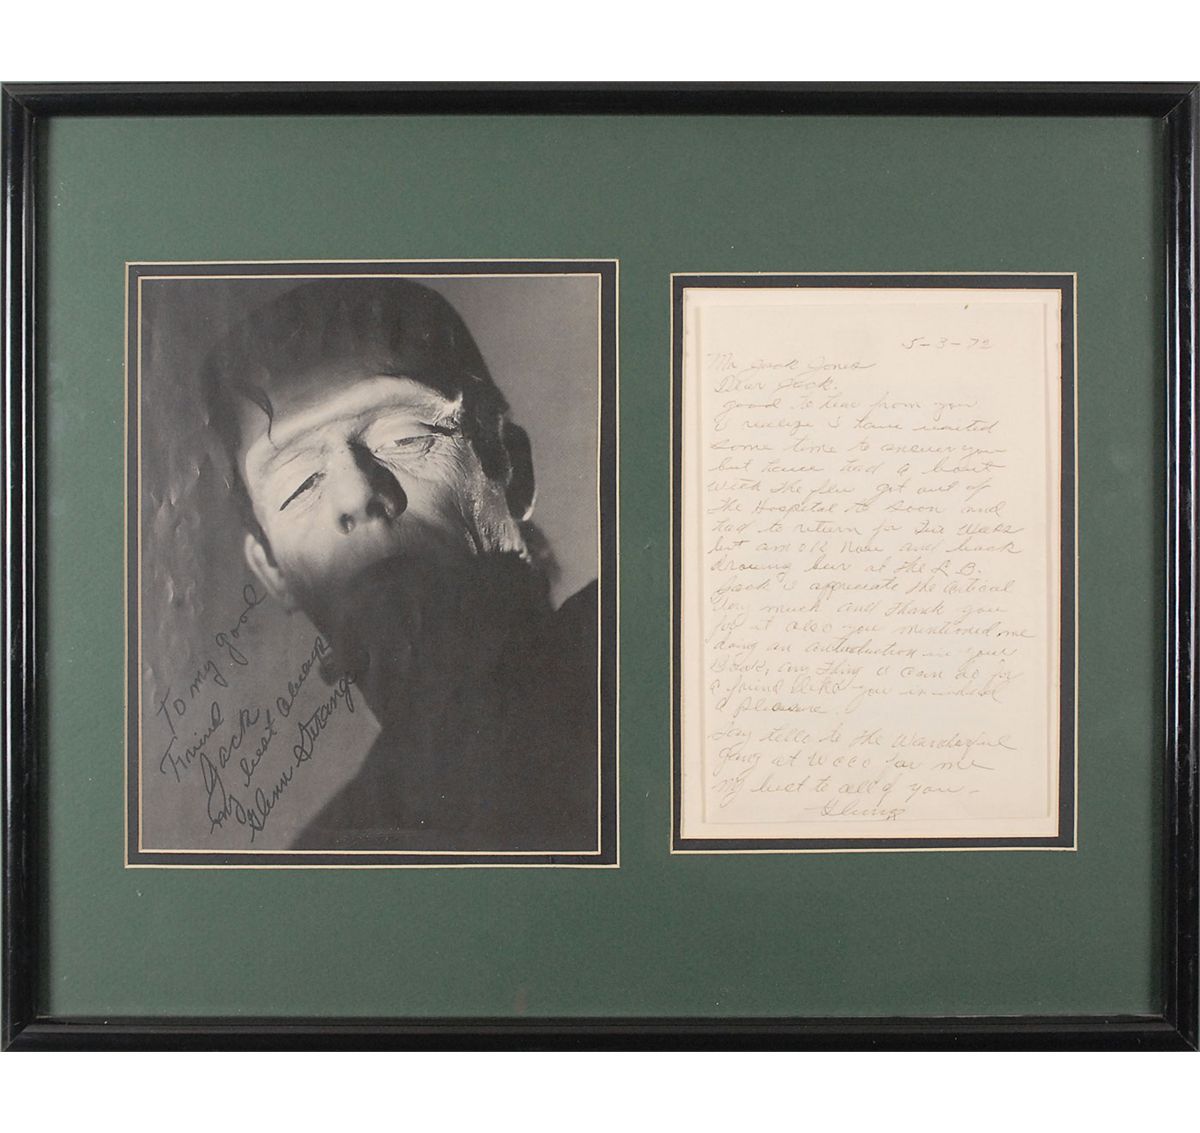 To my good
Friend
Jack
my best always
Glenn Strange
5-3-72
Mr Jack Jones
Dear Jack.
good to hear from you
I realize I have waited
some time to answer you
but have had a bout
with the flu got out of
the Hospital to soon and
had to return for two weeks
but am OK now and back
drawing beer at the L.B.
Jack I appreciate the artical
very much and thank you
for it also you mentioned me
doing an introduction in your
Book, any thing I can do for
a friend like you is indeed
a pleasure.
Say hello to the Wonderful
gang at WOCO for me
my best to all of you -
Glenn